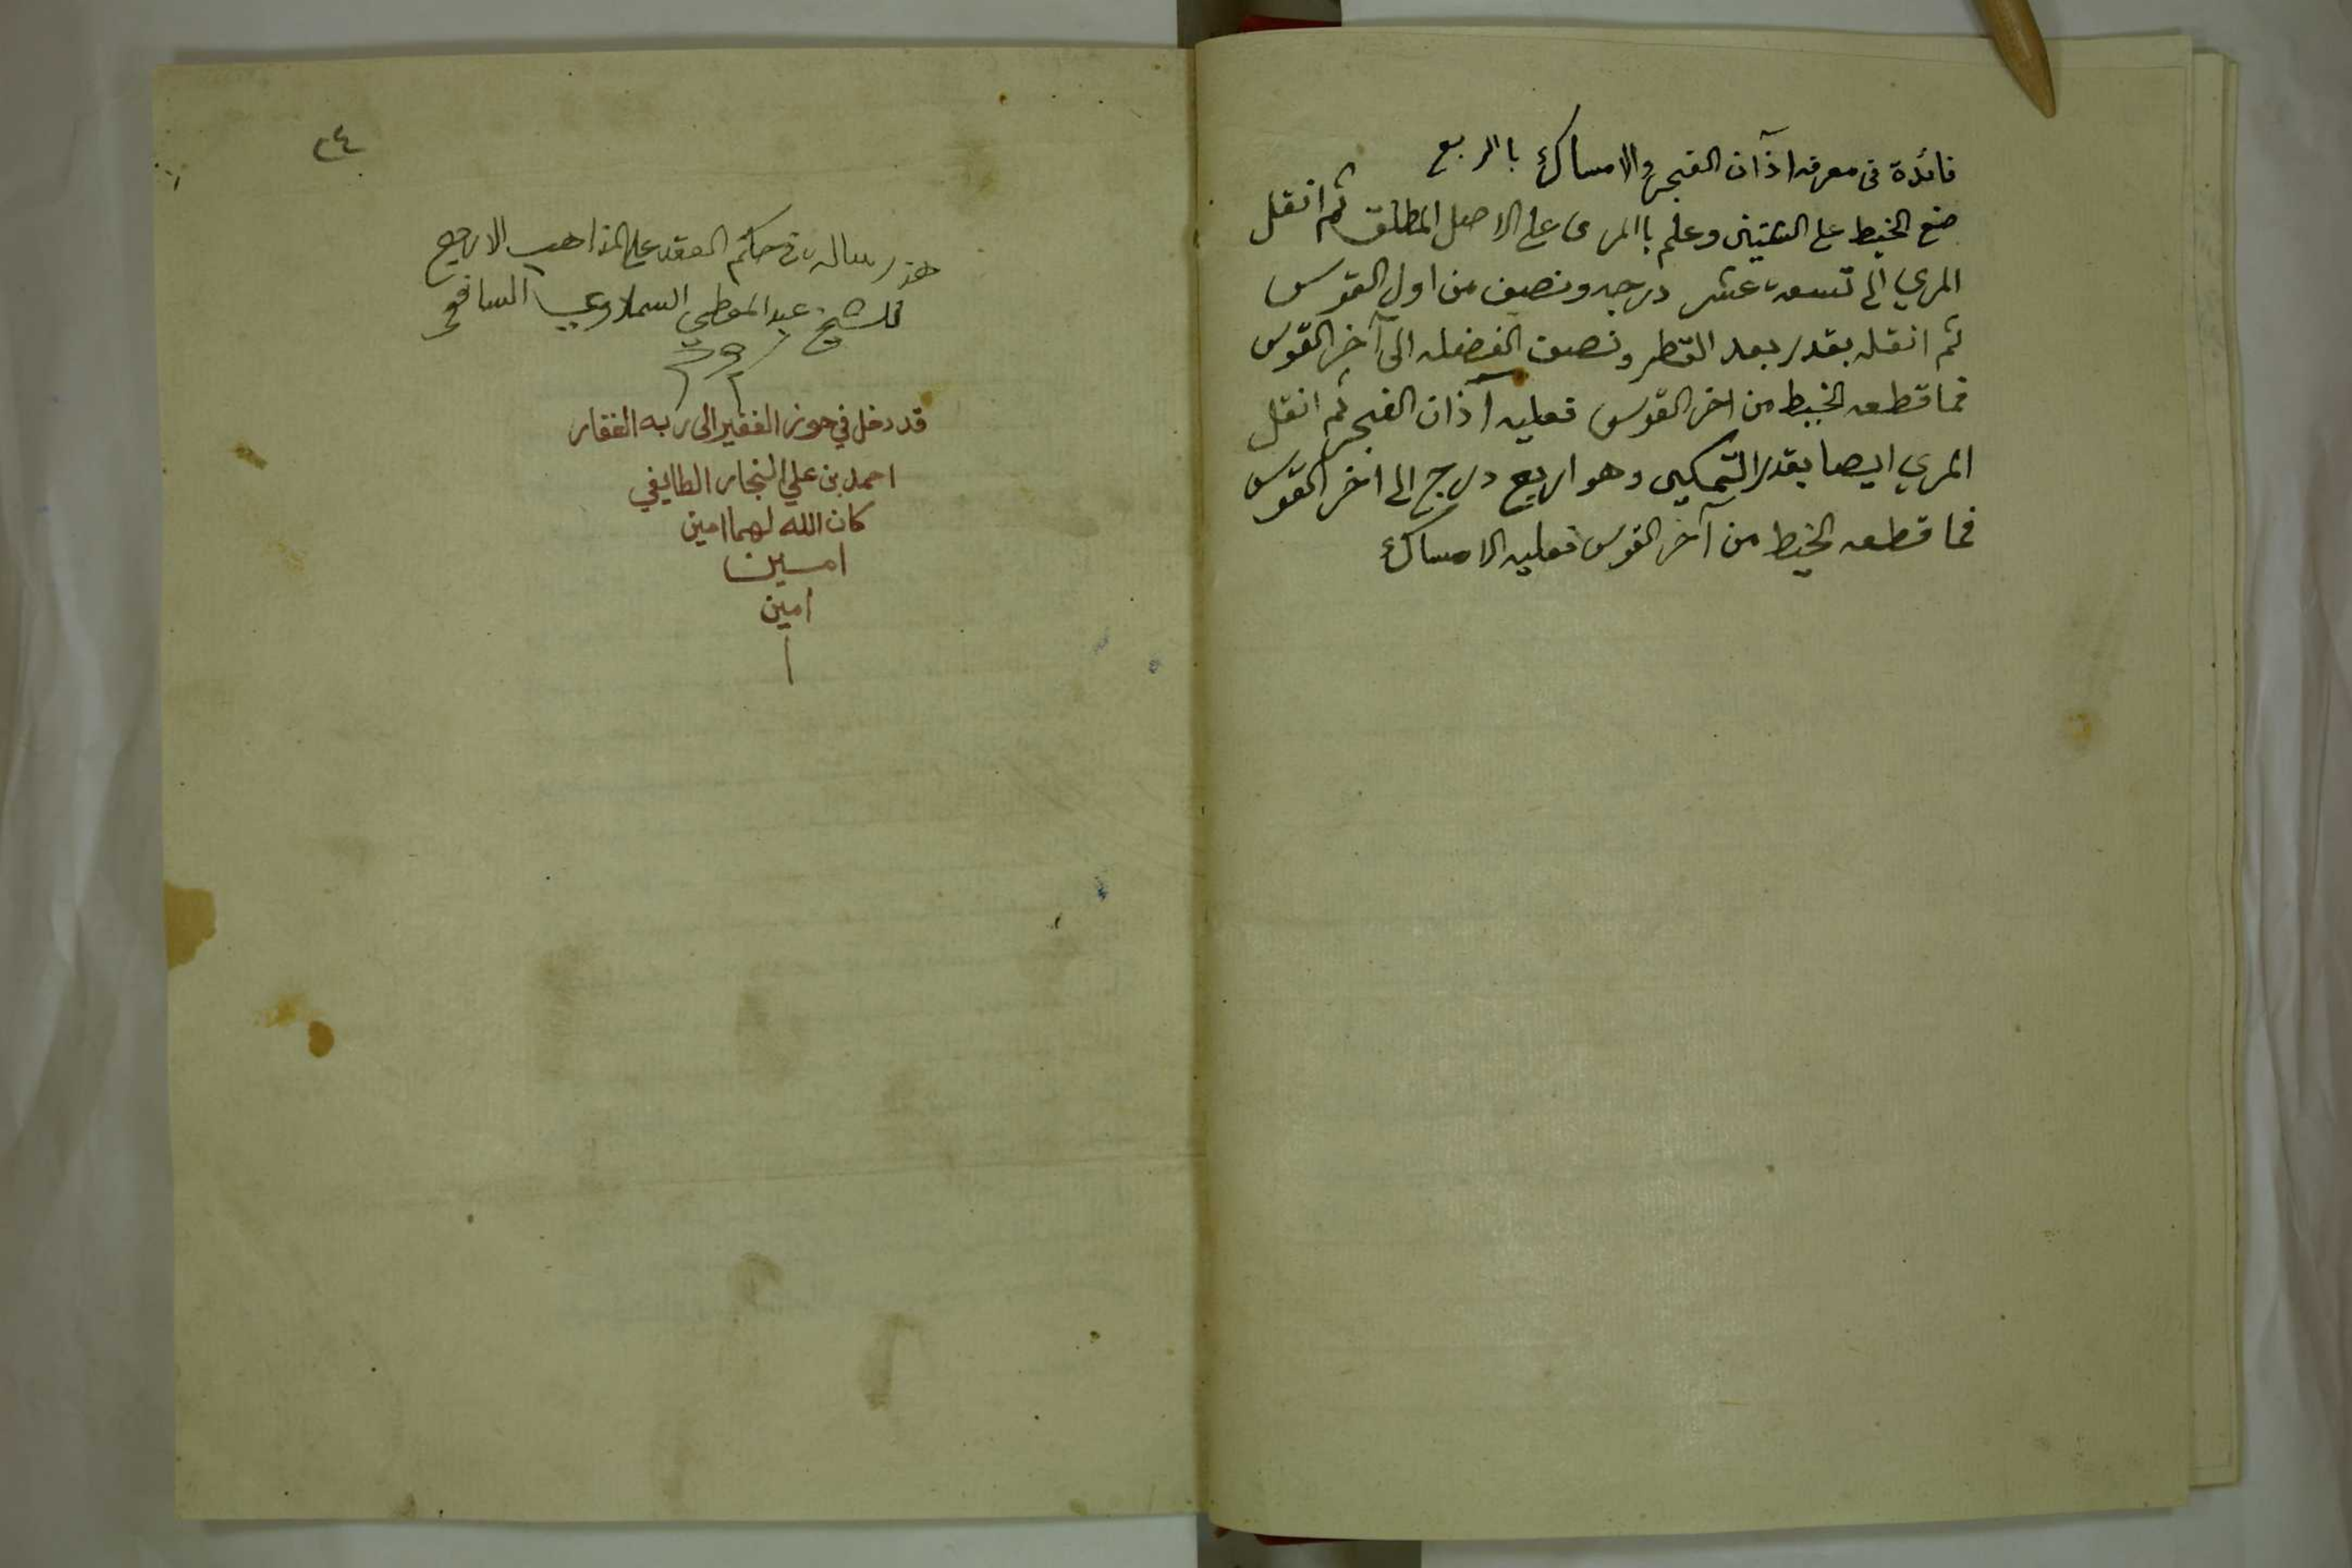 فائدة فى معرفة اذآن الفجر والامساك بالربع
ضع الخيط على الستين وعلم باالمرى على الاصل المطلق ثم انقل
المري الى تسعة عشر درجه ونصف من اول القوس
ثم انقله بقدر بعد القطر ونصف الفضله الى آخر القوس
فما قطعه الخيط من اخر القوس فعليه آذان الفجر ثم انقل
المري ايضا بقدر التمكين وهو اربع درج الى اخر القوس
فما قطعه الخيط من آخر القوس فعليه الامساك
٢٤
هذه رسالة فى حكم العقد على المذاهب الاربع
للشيخ عبد المعطي السملاوي الشافعي
قد دخل في حوز الفقير الى ربه الغفار
احمد بن علي النجار الطايفي
كان الله لهما امين
امين
امين